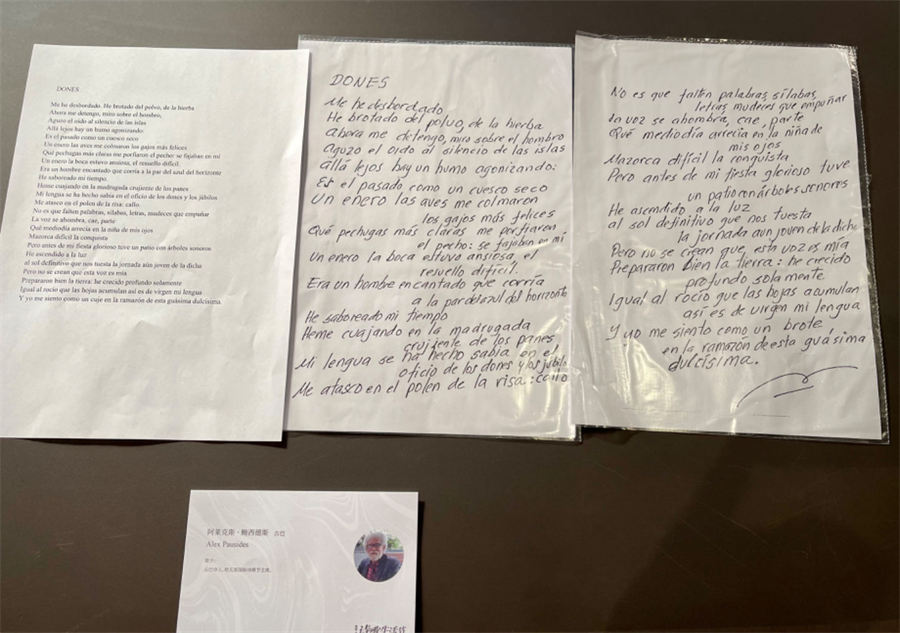 DONES
Me he desbordado. He brotado del polvo, de la hierba
Ahora me detengo, miro sobre el hombro,
Aguzo el oído al silencio de las islas
Allá lejos hay un humo agonizando:
Es el pasado como un cuesco seco
Un enero las aves me colmaron los gajos más felices
Qué pechugas más claras me porfiaron el pecho: se fajaban en mí
Un enero la boca estuvo ansiosa, el resuello difícil.
Era un hombre encantado que corría a la par del azul del horizonte
He saboreado mi tiempo.
Heme cuajando en la madrugada crujiente de los panes
Mi lengua se ha hecho sabia en el oficio de los dones y los júbilos
Me atasco en el polen de la risa: callo.
No es que falten palabras, sílabas, letras, mudeces que empuñar
La voz se ahombra, cae, parte
Qué mediodía arrecia en la niña de mis ojos
Mazorca difícil la conquista
Pero antes de mi fiesta glorioso tuve un patio con árboles sonoros
He ascendido a la luz
al sol definitivo que nos tuesta la jornada aún joven de la dicha
Pero no se crean que esta voz es mía
Prepararon bien la tierra: he crecido profundo solamente
Igual al rocío que las hojas acumulan así es de virgen mi lengua
Y yo me siento como un cuje en la ramazón de esta guásima dulcísima.
DONES
Me he desbordado
He brotado del polvo, de la hierba
ahora me detengo, miro sobre el hombro
Aguzo el oido al silencio de las islas
allá lejos hay un humo agonizando:
Es el pasado como un cuesco seco
Un enero las aves me colmaron
los gajos más felices
Qué pechugas más claras me porfiaron
el pecho: se fajaban en mí
Un enero la boca estuvo ansiosa, el
resuello difícil.
Era un hombre encantado que corría
a la par del azul del horizonte
He saboreado mi tiempo
Heme cuajando en la madrugada
crujiente de los panes
Mi lengua se ha hecho sabia en el
oficio de los dones y los júbilos
Me atasco en el polen de la risa: callo
No es que falten palabras, sílabas,
letras, mudeces que empuñar
La voz se ahombra, cae, parte
Qué mediodía arrecia en la niña de
mis ojos
Mazorca difícil la conquista
Pero antes de mi fiesta glorioso tuve
un patio con árboles sonoros
He ascendido a la luz
al sol definitivo que nos tuesta
la jornada aun joven de la dicha
Pero no se crean que esta voz es mía
Prepararon bien la tierra: he crecido
profundo solamente
Igual al rocío que las hojas acumulan
así es de virgen mi lengua
Y yo me siento como un brote,
en la ramazón de esta guásima
dulcísima.
阿莱克斯·鲍西德斯 古巴
Alex Pausides